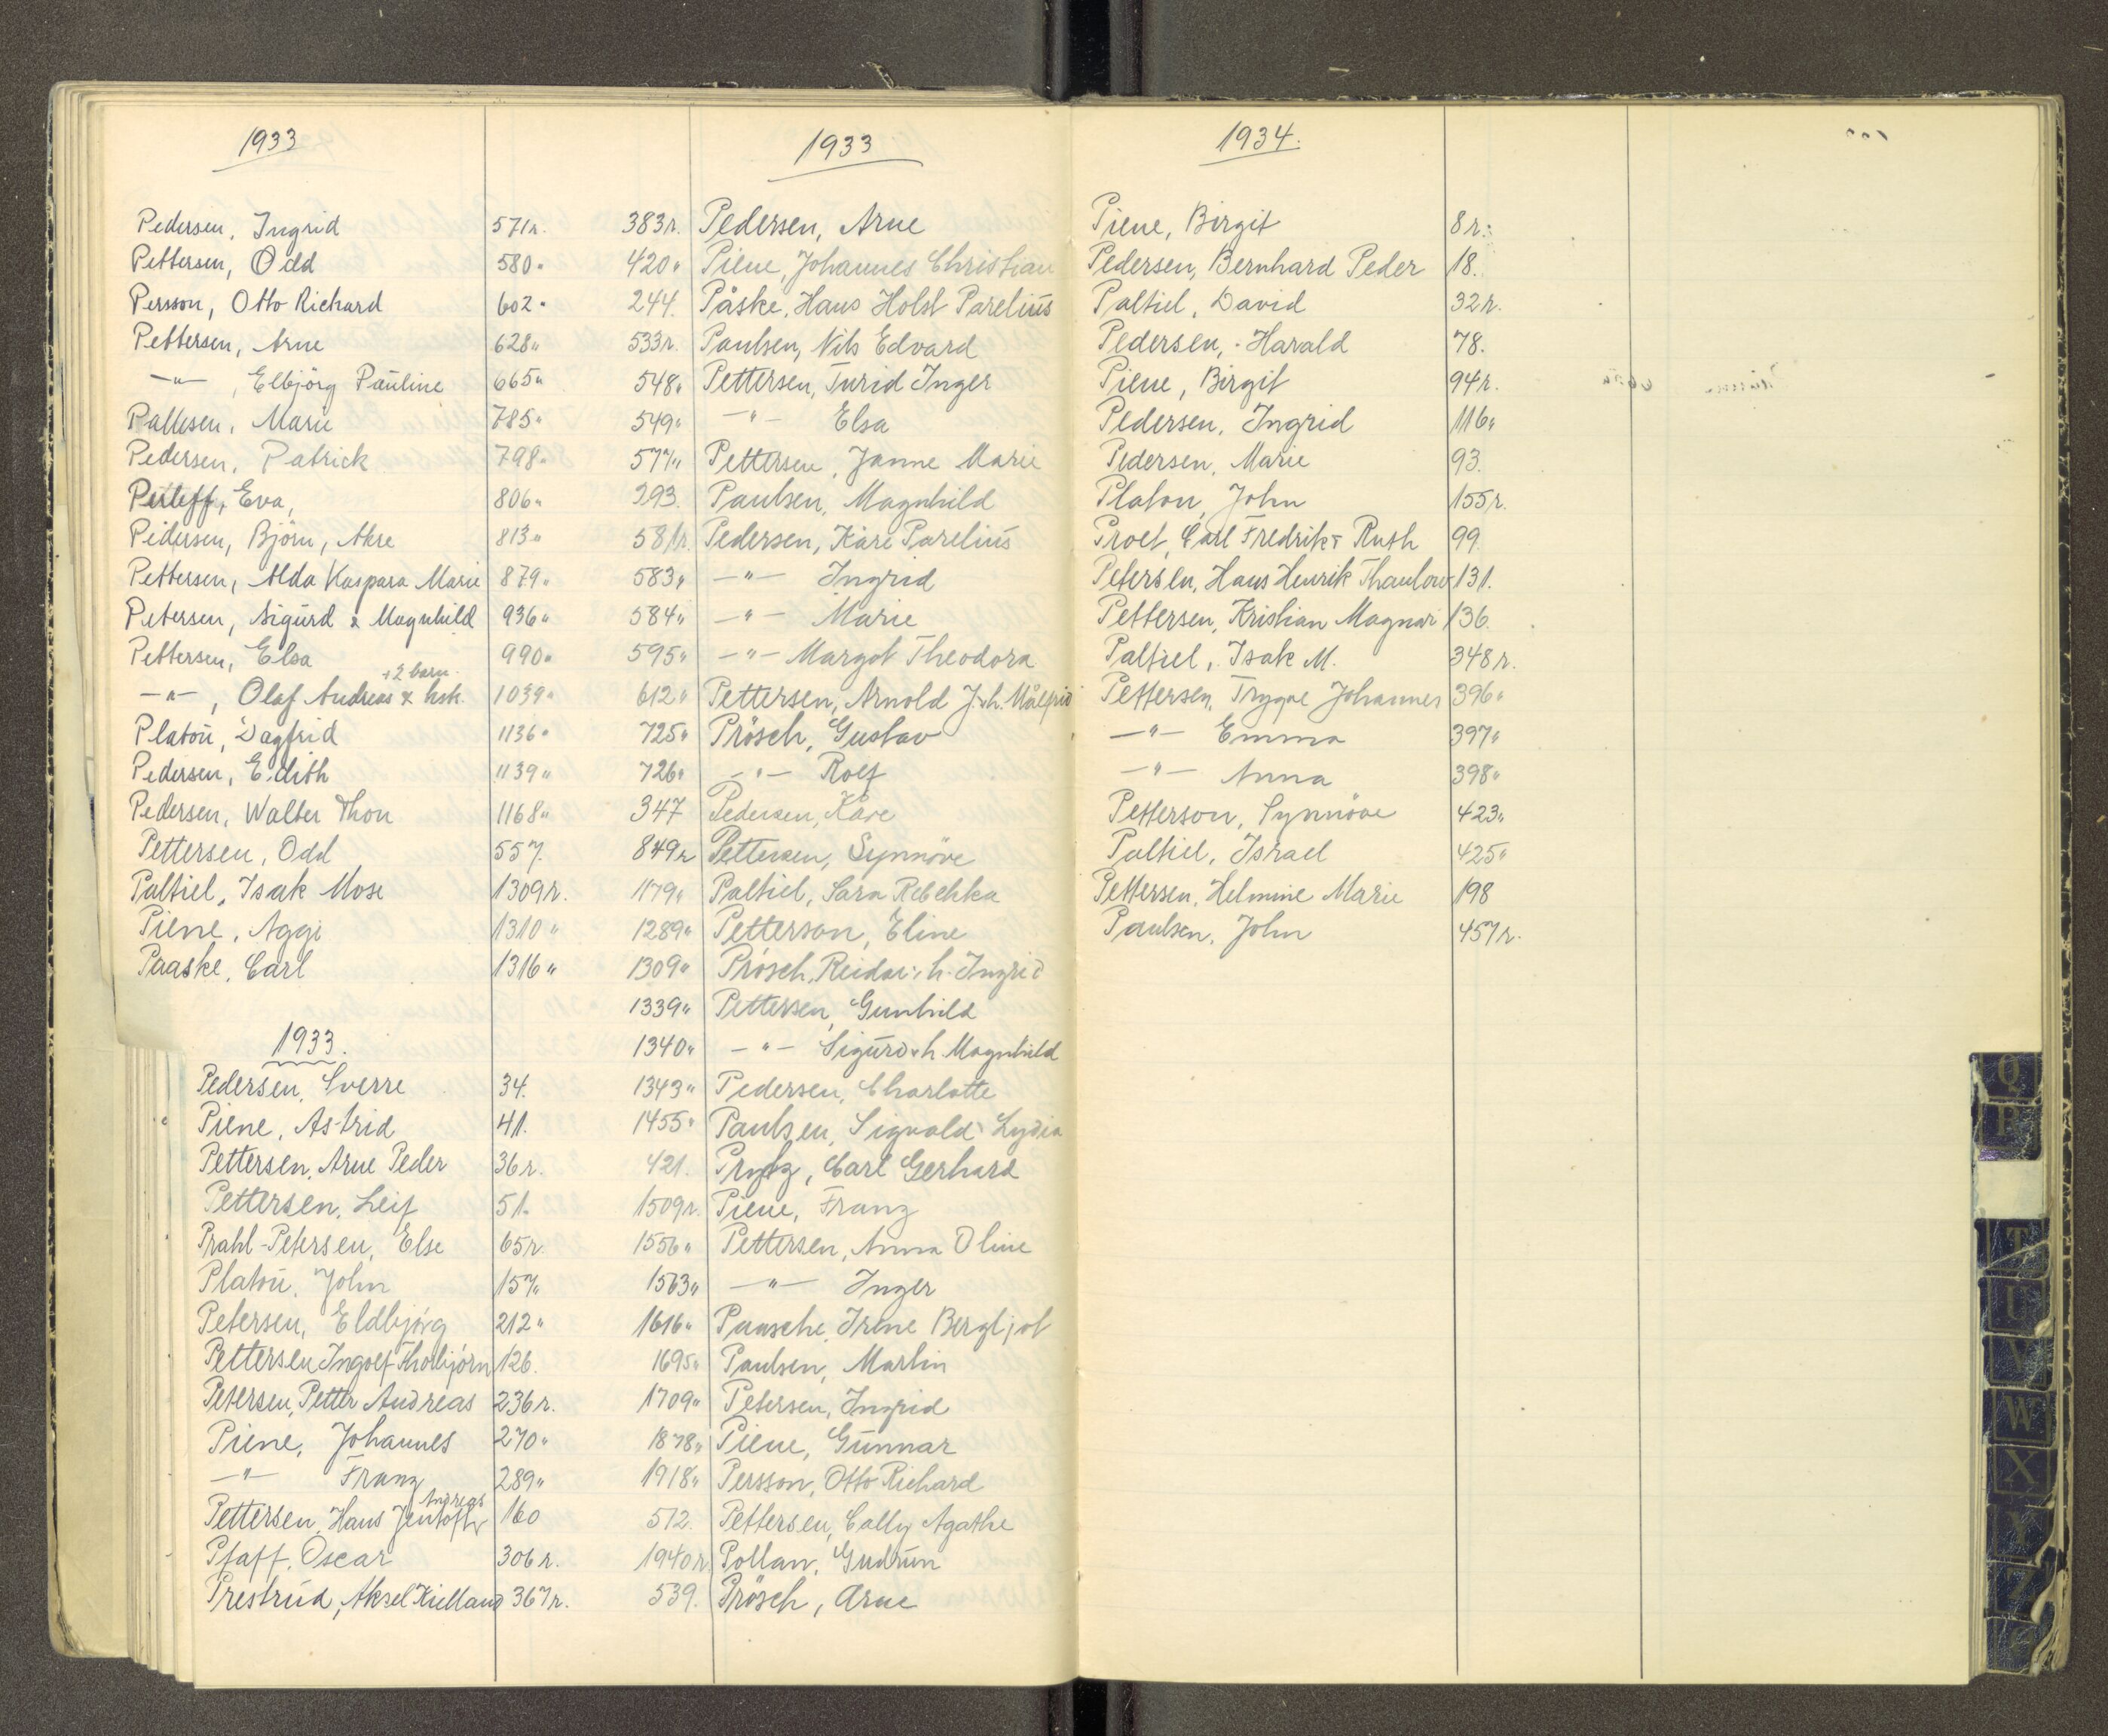 1933
Pedersen, Ingrid 571r.
Pettersen, Odd 580"
Persson, Otto Richard 602"
Pettersen, Arne 628"
—"—, Elbjörg Pauline 665"
Pallesen, Marie 785"
Pedersen, Patrick 798"
Eva, 806"
Pedersen, Björn, Akre 813"
Pettersen, Alda Kaspara Marie 879"
Petersen, Sigurd & Magnhild 936"
Pettersen, Elsa 990"
+2 barn.
—"—, Olaf Andreas & hsk. 1039"
Platou, Dagfrid 1136"
Pedersen, Edith 1139"
Pedersen, Walter Thon 1168"
Pettersen, Odd 557.
Paltiel, Isak Mose 1309r.
Piene, Aggi 1310"
Paaske, Carl 1316"
1933.
Pedersen, Sverre 34.
Piene, Astrid 41.
Pettersen, Arne Peder 36r.
Pettersen, Leif 51.
Prahl-Petersen, Else 65r.
Platou, John 157"
Petersen, Eldbjörg 212"
Pettersen Ingolf Thorbjörn 126.
Petersen, Petter Andreas 236r.
Piene, Johannes 270"
—"— Franz 289"
Andreas
Pettersen, Hans Jentoft 160
Pfaff, Oscar 306r.
Prestrud, Aksel Kielland 367r.
1933
383r. Pedersen, Arne
420" Piene, Johannes Christian
244. Påske, Hans Holst Parelius
533r. Paulsen, Nils Edvard
548" Pettersen, Turid Inger
549" —"— Elsa
577" Pettersen, Janne Marie
293. Paulsen, Magnhild
581r. Pedersen, Kåre Parelius
583" —"— Ingrid
584" —"— Marie
595" —"— Margot Theodora
612" Pettersen, Arnold J. & h. Målfrid
725" Prösch, Gustav
726" —"— Rolf
347 Pedersen, Kåre
849r Pettersen, Synnöve
1179" Paltiel, Sara Rebehka
1289" Petterson, Eline
1309" Prösch, Reidar & h. Ingrid
1339" Pettersen, Gunhild
1340" —"— Sigurd & h. Magnhild
1343" Pedersen, Charlotte
1455" Paulsen, Sigvald & Lydia
421. Prytz, Carl Gerhard
1509r. Piene, Franz
1556" Pettersen, Anna Oline
1563" —"— Inger
1616" Paasche, Irene Bergljot
1695" Paulsen, Martin
1709" Petersen, Ingrid
1878" Piene, Gunnar
1918" Persson, Otto Richard
512. Pettersen, Cally Agathe
1940r. Pollan, Gudrun
539. Prösch, Arne
1934.
Piene, Birgit 8r.
Pedersen, Bernhard Peder 18.
Paltiel, David 32r.
Pedersen, Harald 78.
Piene, Birgit 94r.
Pedersen, Ingrid 116"
Pedersen, Marie 93.
Platou, John 155r.
Proet, Carl Fredrik & Ruth 99.
Petersen, Hans Henrik Thaulow 131.
Pettersen, Kristian Magnar 136.
Paltiel, Isak M. 348r.
Pettersen, Trygve Johannes 396"
—"— Emma 397"
—"— Anna 398"
Petterson, Synnöve 423"
Paltiel, Israel 425"
Pettersen, Helmine Marie 198
Paulsen, John 457r.
Q
P
T
U
V
W
X
Y
Z